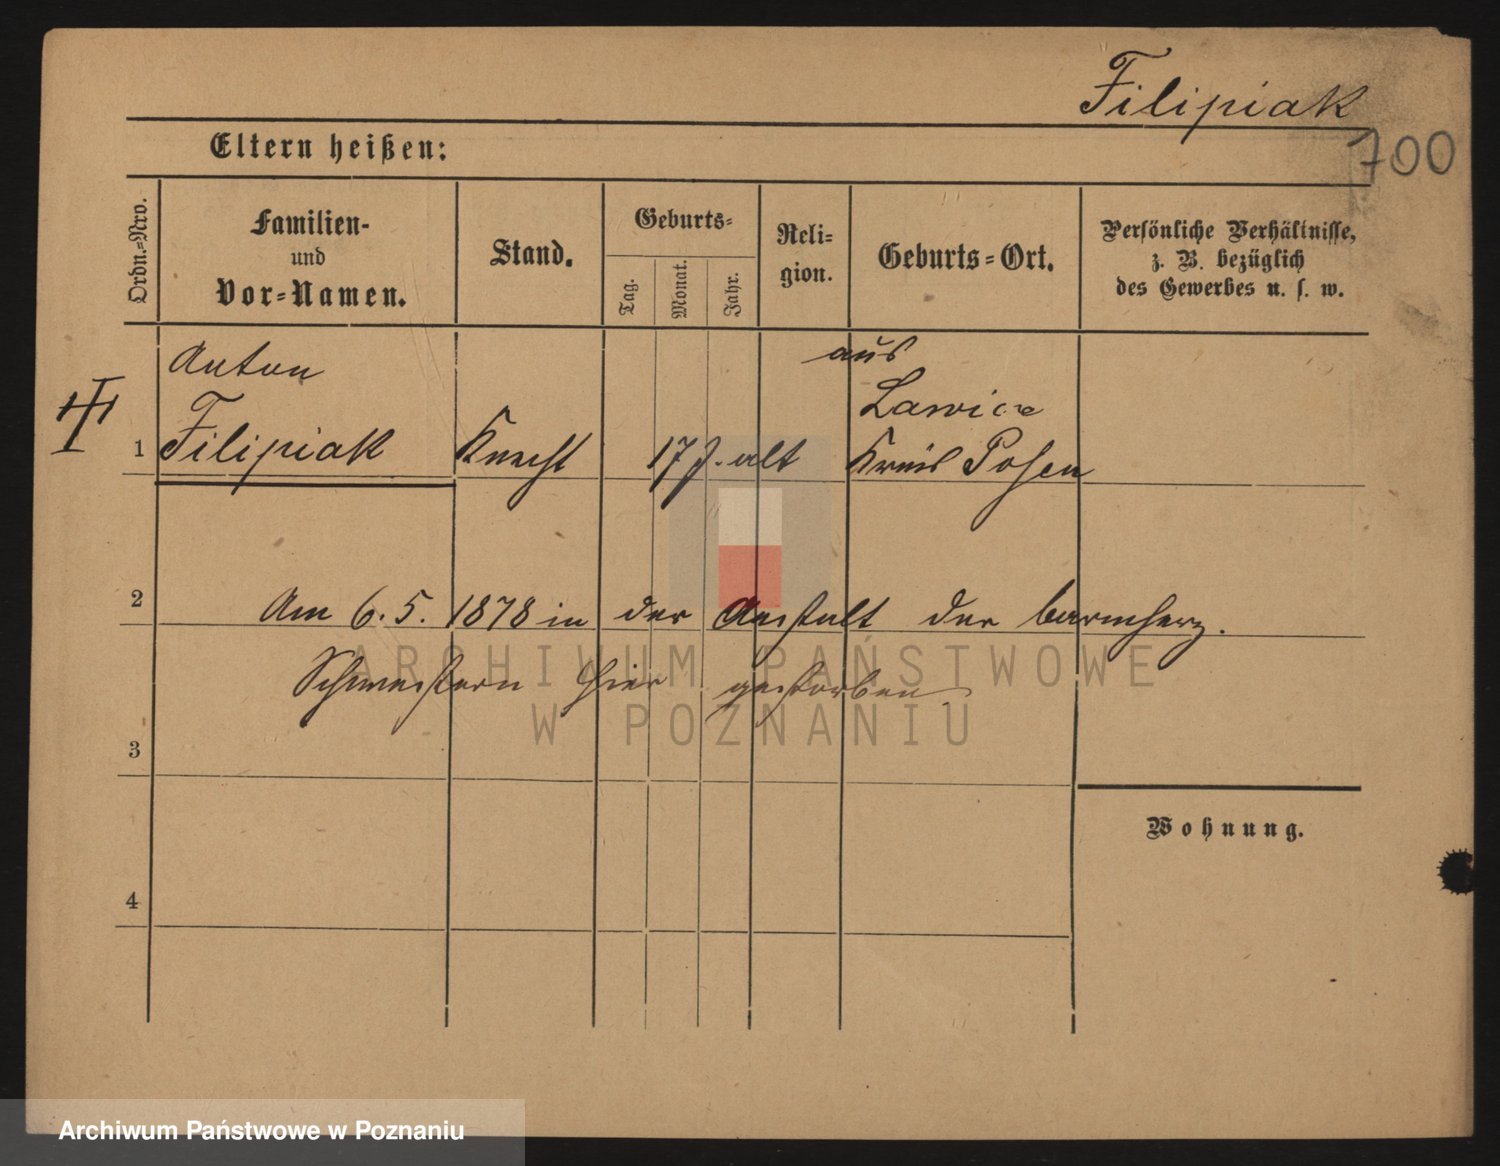 Filipiak
700
Eltern heißen:
Ordn.=Nro.
Familien-
und
Vor=Namen.
Stand.
Geburts=
Tag.
Monat.
Jahr.
Reli=
gion.
Geburts=Ort.
Persönliche Verhältnisse,
z. B. bezüglich
des Gewerbes u. s. w.
Anton
aus
Lawice
1 Filipiak Knecht 17 J. alt Kreis Posen
2
Am 6. 5. 1878 in der Anstalt der barmherz.
Schwestern hier gestorben
ARCHIWUM PAŃSTWOWE
W POZNANIU
3
Wohnung.
4
Archiwum Państwowe w Poznaniu